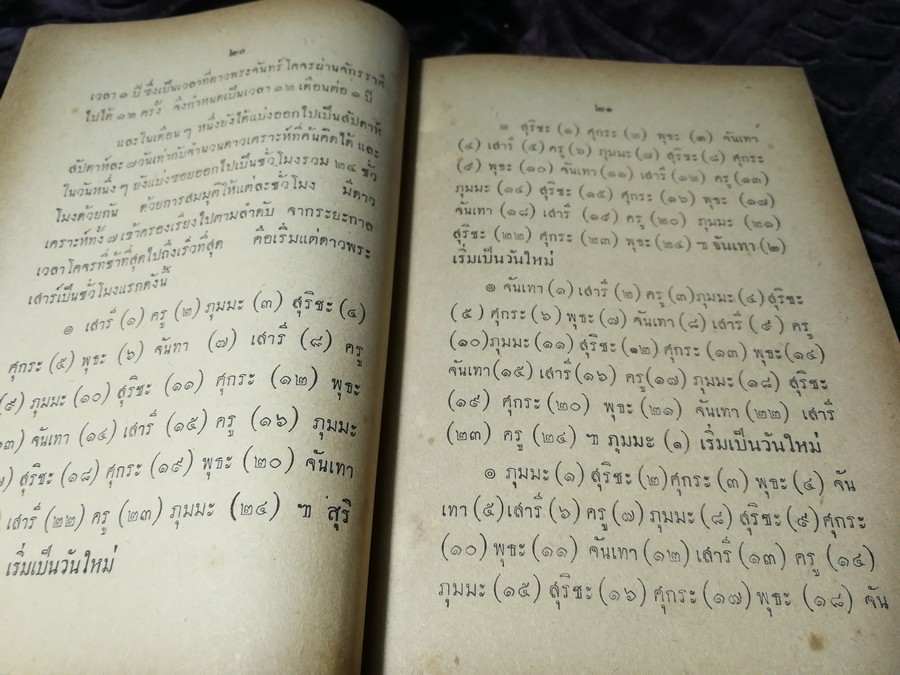 ๒๐
เวลา ๑ ปี ซึ่งเป็นเวลาที่ดาวพระจันทร์ โคจรผ่านจักรราศี
ไปได้ ๑๒ ครั้ง จึงกำหนดเป็นเวลา ๑๒ เดือนต่อ ๑ ปี
และในเดือน ๆ หนึ่งยังได้แบ่งออกไปเป็นสัปดาห์
สัปดาห์ละ ๗ วันเท่ากับจำนวนดาวเคราะห์ที่ค้นคิดได้ และ
ในวันหนึ่ง ๆ ยังแบ่งซอยออกไปเป็นชั่วโมงรวม ๒๔ ชั่ว
โมงด้วยกัน ด้วยการสมมุติให้แต่ละชั่วโมง มีดาว
เคราะห์ทั้ง ๗ เข้าครองเรียงไปตามลำดับ จากระยะกาล
เวลาโคจรที่ช้าที่สุดไปถึงเร็วที่สุด คือเริ่มแต่ดาวพระ
เสาร์เป็นชั่วโมงแรกดังนี้
๑ เสารี (๑) ครู (๒) ภุมมะ (๓) สุริชะ (๔)
ศุกระ (๕) พุธะ (๖) จันทา (๗) เสารี (๘) ครู
(๙) ภุมมะ (๑๐) สุริชะ (๑๑) ศุกระ (๑๒) พุธะ
๑๓) จันเทา (๑๔) เสารี (๑๕) ครู (๑๖) ภุมมะ
) สุริชะ (๑๘) ศุกระ (๑๙) พุธะ (๒๐) จันเทา
เสารี (๒๒) ครู (๒๓) ภุมมะ (๒๔) ฯ สุริ
เริ่มเป็นวันใหม่
๒๑
๑ สุริชะ (๑) ศุกระ (๒) พุธะ (๓) จันเทา
(๔) เสารี (๕) ครู (๖) ภุมมะ (๗) สุริชะ (๘) ศุกระ
(๙) พุธะ (๑๐) จันเทา (๑๑) เสารี (๑๒) ครู (๑๓)
ภุมมะ (๑๔) สุริชะ (๑๕) ศุกระ (๑๖) พุธะ (๑๗)
จันเทา (๑๘) เสารี (๑๙) ครู (๒๐) ภุมมะ (๒๑)
สุริชะ (๒๒) ศุกระ (๒๓) พุธะ (๒๔) ฯ จันเทา (๒)
เริ่มเป็นวันใหม่
๑ จันเทา (๑) เสารี (๒) ครู (๓) ภุมมะ (๔) สุริชะ
(๕) ศุกระ (๖) พุธะ (๗) จันเทา (๘) เสารี (๙) ครู
(๑๐) ภุมมะ (๑๑) สุริชะ (๑๒) ศุกระ (๑๓) พุธะ (๑๔)
จันเทา (๑๕) เสารี (๑๖) ครู (๑๗) ภุมมะ (๑๘) สุริชะ
(๑๙) ศุกระ (๒๐) พุธะ (๒๑) จันเทา (๒๒) เสารี
(๒๓) ครู (๒๔) ฯ ภุมมะ (๑) เริ่มเป็นวันใหม่
๑ ภุมมะ (๑) สุริชะ (๒) ศุกระ (๓) พุธะ (๔) จัน
เทา (๕) เสารี (๖) ครู (๗) ภุมมะ (๘) สุริชะ (๙) ศุกระ
(๑๐) พุธะ (๑๑) จันเทา (๑๒) เสารี (๑๓) ครู (๑๔)
ภุมมะ (๑๕) สุริชะ (๑๖) ศุกระ (๑๗) พุธะ (๑๘) จัน